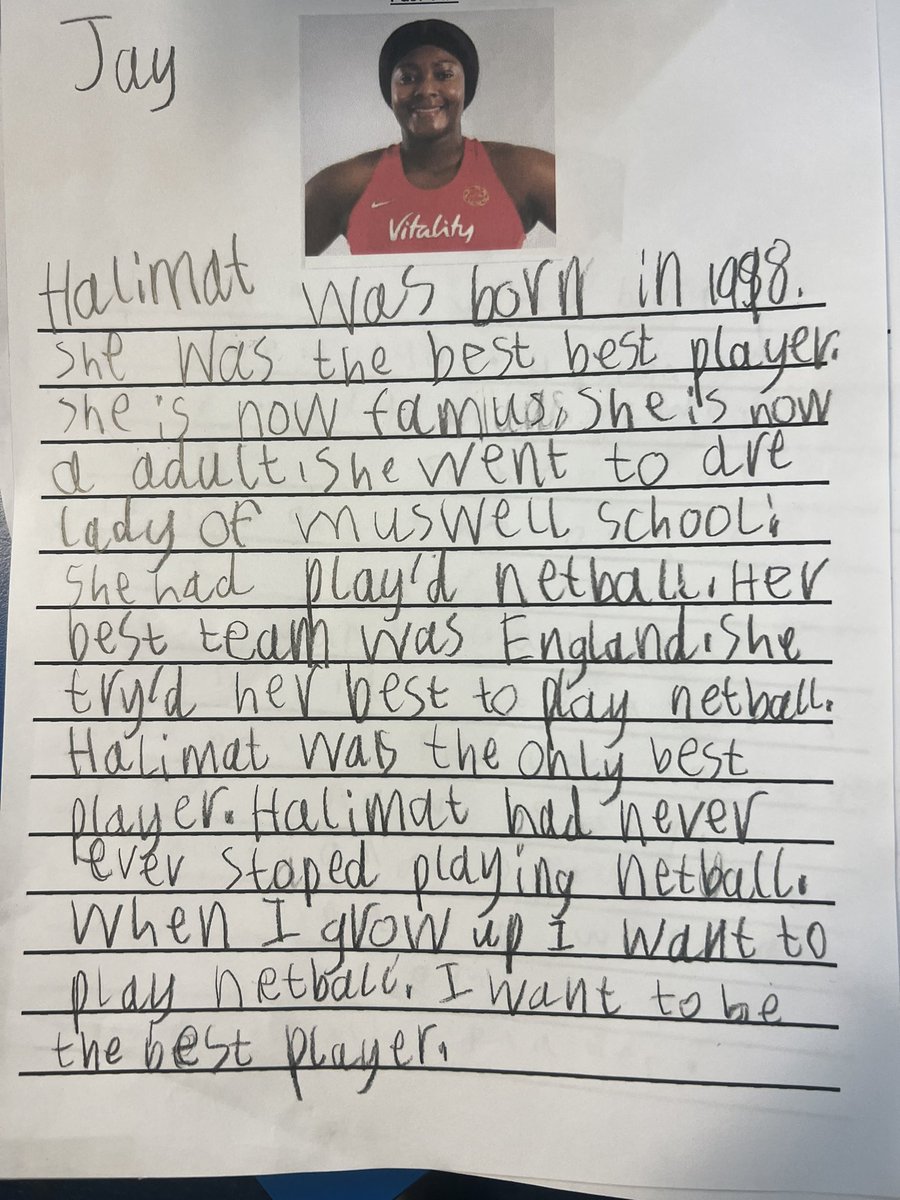 Jay
Vitality
Halimat was born in 1998.
She was the best best player.
She is now famius. She is now
a adult. She went to are
lady of muswell school.
She had play'd netball. Her
best team was England. She
try'd her best to play netball.
Halimat was the only best
player. Halimat had never
ever stoped playing netball.
When I grow up I want to
play netball. I want to be
the best player.